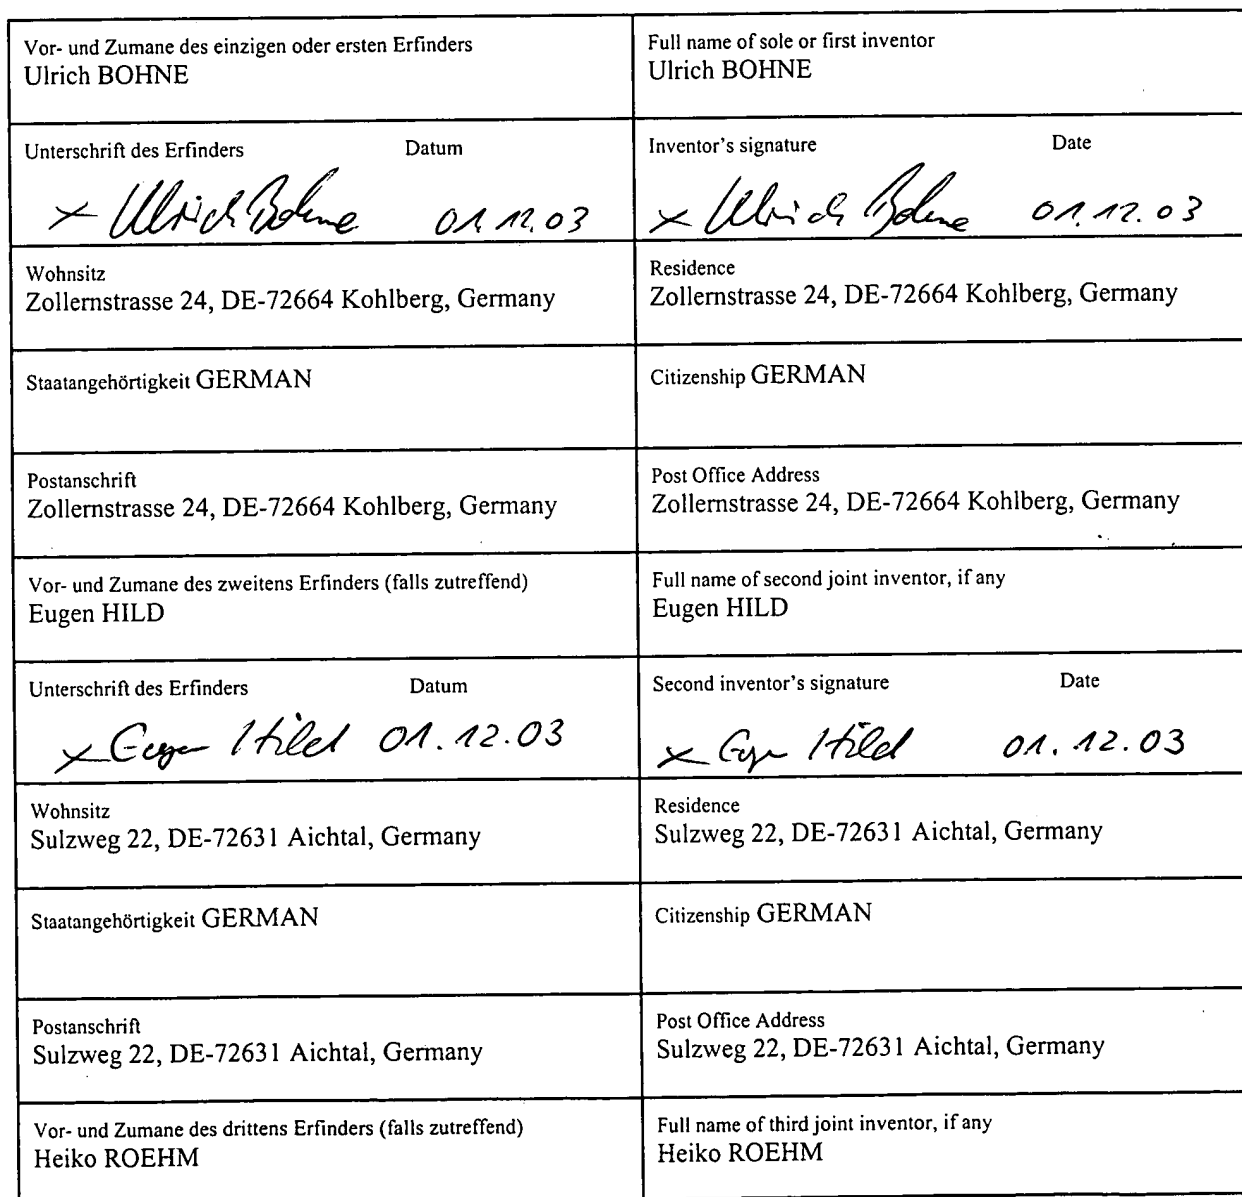 Vor- und Zumane des einzigen oder ersten Erfinders
Ulrich BOHNE
Full name of sole or first inventor
Ulrich BOHNE
Unterschrift des Erfinders Datum
× Ulrich Bohne 01.12.03
Inventor's signature Date
× Ulrich Bohne 01.12.03
Wohnsitz
Zollernstrasse 24, DE-72664 Kohlberg, Germany
Residence
Zollernstrasse 24, DE-72664 Kohlberg, Germany
Staatangehörtigkeit GERMAN
Citizenship GERMAN
Postanschrift
Zollernstrasse 24, DE-72664 Kohlberg, Germany
Post Office Address
Zollernstrasse 24, DE-72664 Kohlberg, Germany
Vor- und Zumane des zweitens Erfinders (falls zutreffend)
Eugen HILD
Full name of second joint inventor, if any
Eugen HILD
Unterschrift des Erfinders Datum
× Eugen Hild 01.12.03
Second inventor's signature Date
× Eugen Hild 01.12.03
Wohnsitz
Sulzweg 22, DE-72631 Aichtal, Germany
Residence
Sulzweg 22, DE-72631 Aichtal, Germany
Staatangehörtigkeit GERMAN
Citizenship GERMAN
Postanschrift
Sulzweg 22, DE-72631 Aichtal, Germany
Post Office Address
Sulzweg 22, DE-72631 Aichtal, Germany
Vor- und Zumane des drittens Erfinders (falls zutreffend)
Heiko ROEHM
Full name of third joint inventor, if any
Heiko ROEHM